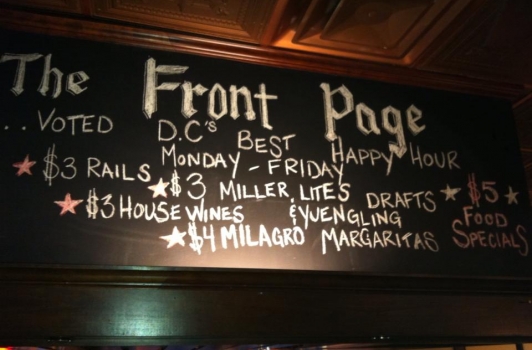 The Front Page
..VOTED D.C's BEST HAPPY HOUR
MONDAY - FRIDAY
$3 RAILS
$3 MILLER LITES
& YUENGLING DRAFTS
$3 HOUSE WINES
$4 MILAGRO MARGARITAS
$5 FOOD SPECIALS